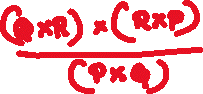 (Q×R)×(R×P)
(P×Q)